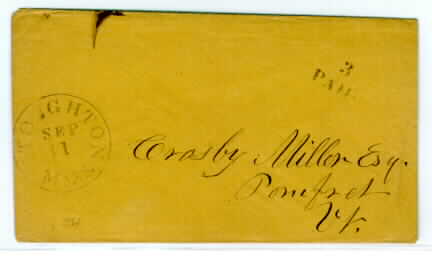 3
PAID
STOUGHTON
SEP
11
MASS
Crosby Miller Esq.
Pomfret
Vt.